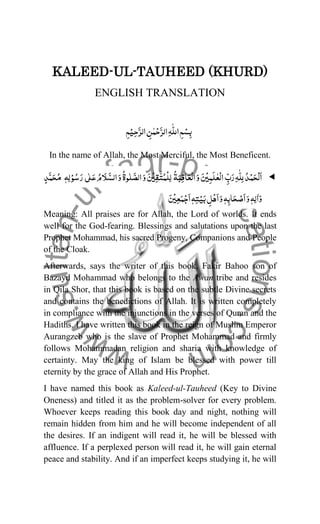 KALEED-UL-TAUHEED (KHURD)
ENGLISH TRANSLATION
بِسْمِ اللهِ الرَّحْمٰنِ الرَّحِيْمِ
In the name of Allah, the Most Merciful, the Most Beneficent.
اَلْحَمْدُ لِلّٰهِ رَبِّ الْعٰلَمِيْنَ وَالْعَاقِبَةُ لِلْمُتَّقِيْنَ وَالصَّلٰوةُ وَالسَّلَامُ عَلٰى رَسُوْلِهٖ مُحَمَّدٍ
وَاٰلِهٖ وَاَصْحَابِهٖ وَاَهْلِ بَيْتِهٖ اَجْمَعِيْنَ
Meaning: All praises are for Allah, the Lord of worlds. It ends
well for the God-fearing. Blessings and salutations upon the last
Prophet Mohammad, his sacred Progeny, Companions and People
of the Cloak.
Afterwards, says the writer of this book, Fakir Bahoo son of
Bazayd Mohammad who belongs to the Awan tribe and resides
in Qila Shor, that this book is based on the subtle Divine secrets
and contains the benedictions of Allah. It is written completely
in compliance with the injunctions in the verses of Quran and the
Hadiths. I have written this book in the reign of Muslim Emperor
Aurangzeb who is the slave of Prophet Mohammad and firmly
follows Mohammadan religion and sharia with knowledge of
certainty. May the king of Islam be blessed with power till
eternity by the grace of Allah and His Prophet.
I have named this book as Kaleed-ul-Tauheed (Key to Divine
Oneness) and titled it as the problem-solver for every problem.
Whoever keeps reading this book day and night, nothing will
remain hidden from him and he will become independent of all
the desires. If an indigent will read it, he will be blessed with
affluence. If a perplexed person will read it, he will gain eternal
peace and stability. And if an imperfect keeps studying it, he will